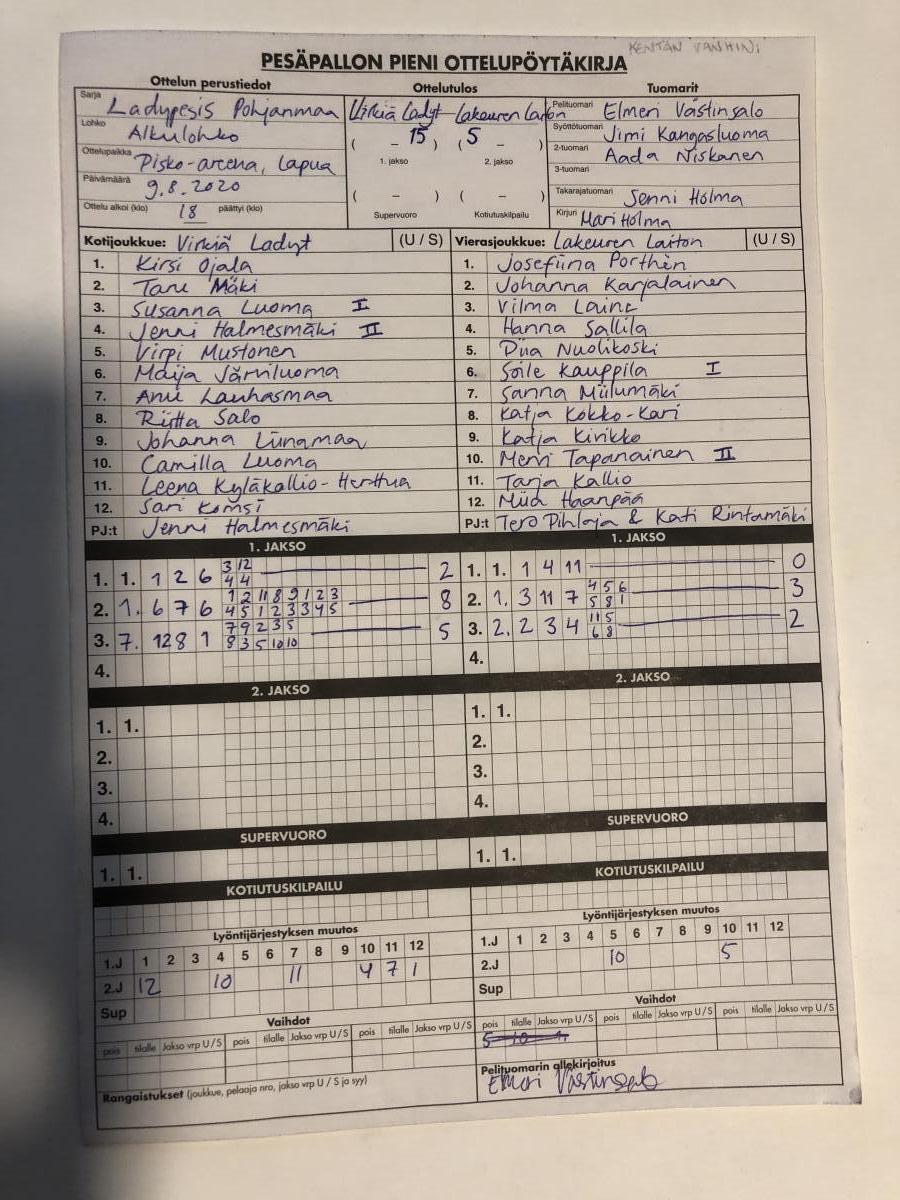 KENTÄN VANHIN!
PESÄPALLON PIENI OTTELUPÖYTÄKIRJA
Ottelun perustiedot
Sarja Ladypesis Pohjanmaa
Lohko Alkulohko
Ottelupaikka Pisko-arena, Lapua
Päivämäärä 9.8.2020
Ottelu alkoi (klo) 18 päättyi (klo)
Ottelutulos
Virkiä Ladyt - Lakeuren Laiton
( - 15 ) ( 5 - )
1. jakso 2. jakso
( - ) ( - )
Supervuoro Kotiutuskilpailu
Tuomarit
Pelituomari Elmeri Västinsalo
Syöttötuomari Jimi Kangasluoma
2-tuomari Aada Niskanen
3-tuomari
Takarajatuomari Jenni Holma
Kirjuri Mari Holma
Kotijoukkue: Virkiä Ladyt (U / S)
1. Kirsi Ojala
2. Taru Mäki
3. Susanna Luoma I
4. Jenni Halmesmäki II
5. Virpi Mustonen
6. Maija Järviluoma
7. Anu Lauhasmaa
8. Riitta Salo
9. Johanna Liinamaa
10. Camilla Luoma
11. Leena Kyläkallio-Herttua
12. Sari Komsi
PJ:t Jenni Halmesmäki
Vierasjoukkue: Lakeuren Laiton (U / S)
1. Josefiina Porthén
2. Johanna Karjalainen
3. Vilma Laine
4. Hanna Sallila
5. Piia Nuolikoski
6. Soile Kauppila I
7. Sanna Miilumäki
8. Katja Kokko-Kari
9. Katja Kivikko
10. Mervi Tapanainen II
11. Tarja Kallio
12. Miia Haanpää
PJ:t Tero Pihlaja & Kati Rintamäki
1. JAKSO
1. 1. 1 2 6 3 12 2
4 4
2. 1. 6 7 6 1 2 11 8 9 1 2 3 8
4 5 1 2 3 3 4 5
3. 7. 12 8 1 7 9 2 3 5 5
8 3 5 10 10
4.
1. JAKSO
1. 1. 1 4 11 0
2. 1. 3 11 7 4 5 6 3
5 8 1
3. 2. 2 3 4 11 5 2
6 8
4.
2. JAKSO
1. 1.
2.
3.
4.
2. JAKSO
1. 1.
2.
3.
4.
SUPERVUORO
1. 1.
SUPERVUORO
1. 1.
KOTIUTUSKILPAILU
KOTIUTUSKILPAILU
Lyöntijärjestyksen muutos
1.J 1 2 3 4 5 6 7 8 9 10 11 12
2.J 12 10 11 4 7 1
Sup
Lyöntijärjestyksen muutos
1.J 1 2 3 4 5 6 7 8 9 10 11 12
2.J 10 5
Sup
Vaihdot
pois tilalle Jakso vrp U / S pois tilalle Jakso vrp U / S pois tilalle Jakso vrp U / S
Rangaistukset (joukkue, pelaaja nro, jakso vrp U / S ja syy)
Vaihdot
pois tilalle Jakso vrp U / S pois tilalle Jakso vrp U / S pois tilalle Jakso vrp U / S
5 10 1.
Pelituomarin allekirjoitus
Elmeri Västinsalo